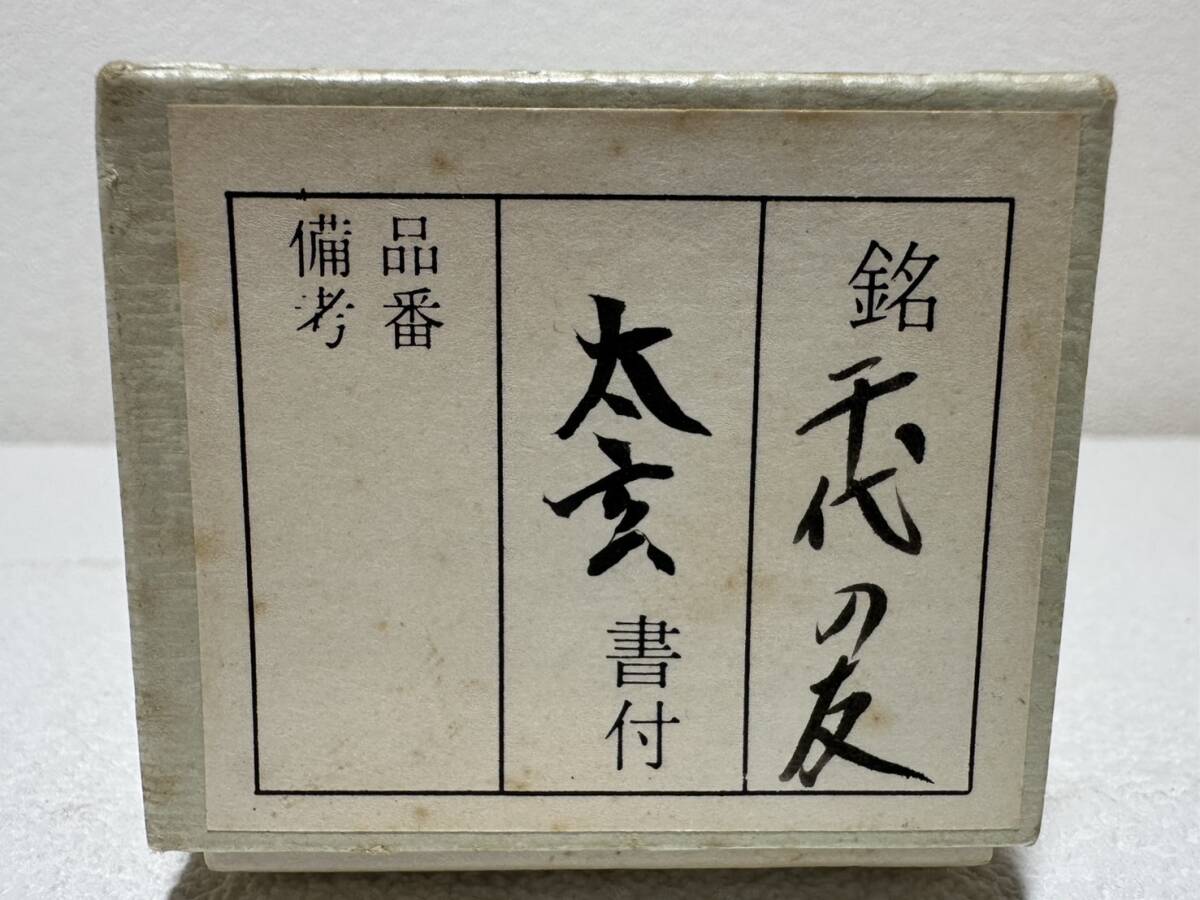 銘 千代の友
太玄 書付
品番
備考